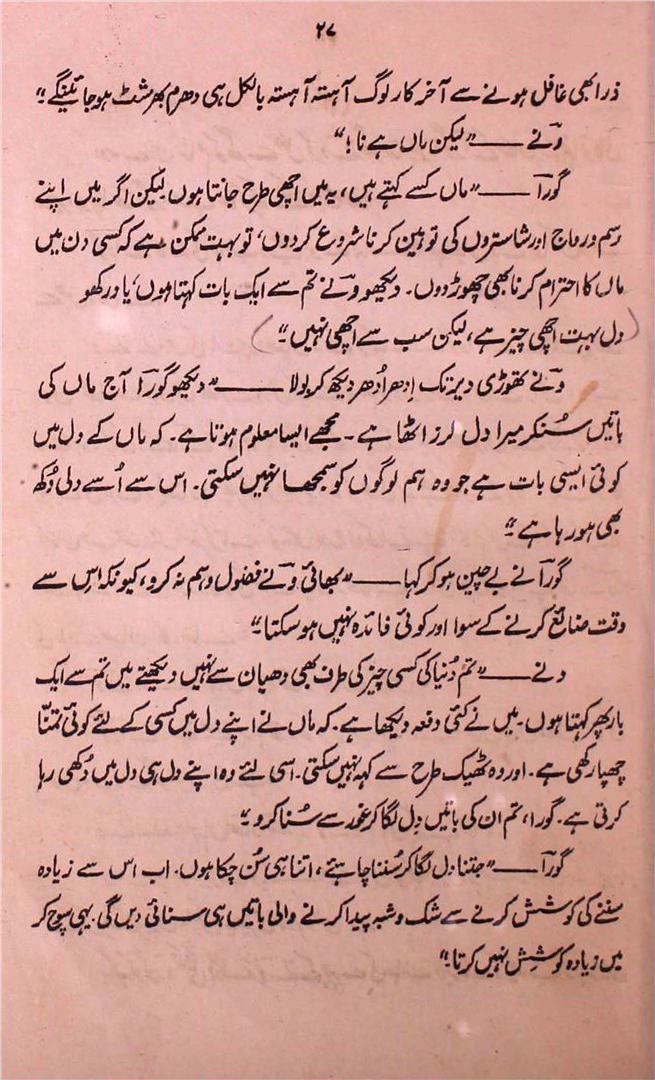 ۲۷
ذرا بھی غافل ہونے سے آخر کار لوگ آہستہ آہستہ بالکل ہی دھرم بھرشٹ ہو جائینگے"
ونے ــــــ "لیکن ماں ہے نا!"
گورا ــــــ "ماں کسے کہتے ہیں، یہ میں اچھی طرح جانتا ہوں لیکن اگر میں اپنے
رسم و رواج اور شاستروں کی توہین کرنا شروع کر دوں، تو بہت ممکن ہے کہ کسی دن میں
ماں کا احترام کرنا بھی چھوڑ دوں۔ دیکھو ونے تم سے ایک بات کہتا ہوں، یاد رکھو
(دل بہت اچھی چیز ہے، لیکن سب سے اچھی نہیں")
ونے تھوڑی دیر تک اِدھر اُدھر دیکھ کر بولا ــــــ "دیکھو گورا آج ماں کی
باتیں سُنکر میرا دل لرز اٹھا ہے۔ مجھے ایسا معلوم ہوتا ہے۔ کہ ماں کے دل میں
کوئی ایسی بات ہے جو وہ ہم لوگوں کو سمجھا نہیں سکتی۔ اس سے اُسے دلی دُکھ
بھی ہو رہا ہے"
گورا نے بے چین ہو کر کہا ــــــ "بھائی ونے فضول وہم نہ کرو، کیونکہ اِس سے
وقت ضائع کرنے کے سوا اور کوئی فائدہ نہیں ہو سکتا"
ونے ــــــ "تم دُنیا کی کسی چیز کی طرف بھی دھیان سے نہیں دیکھتے میں تم سے ایک
بار پھر کہتا ہوں۔ میں نے کئی دفعہ دیکھا ہے۔ کہ ماں نے اپنے دل میں کسی کے لئے کوئی تمنّا
چھپا رکھی ہے۔ اور وہ ٹھیک طرح سے کہہ نہیں سکتی۔ اسی لئے وہ اپنے دل ہی دل میں دُکھی رہا
کرتی ہے۔ گورا، تم ان کی باتیں دِل لگا کر غور سے سُنا کرو"
گورا ــــــ "جتنا دل لگا کر سُننا چاہئے، اتنا ہی سُن چکا ہوں۔ اب اس سے زیادہ
سننے کی کوشش کرنے سے شک و شبہ پیدا کرنے والی باتیں ہی سنائی دیں گی۔ یہی سوچ کر
میں زیادہ کوشش نہیں کرتا۔"